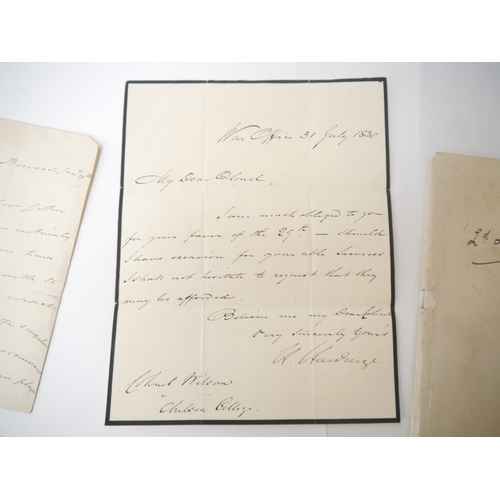 War Office 31 July 1830
My Dear Colonel,
I am much obliged to you
for your favor of the 29th — Should
I have occasion for your able Services
I shall not hesitate to request that they
may be afforded.
Believe me my Dear Colonel
Very Sincerely Yours
H. Hardinge
Colonel Wilson
Chelsea College.
father
2d